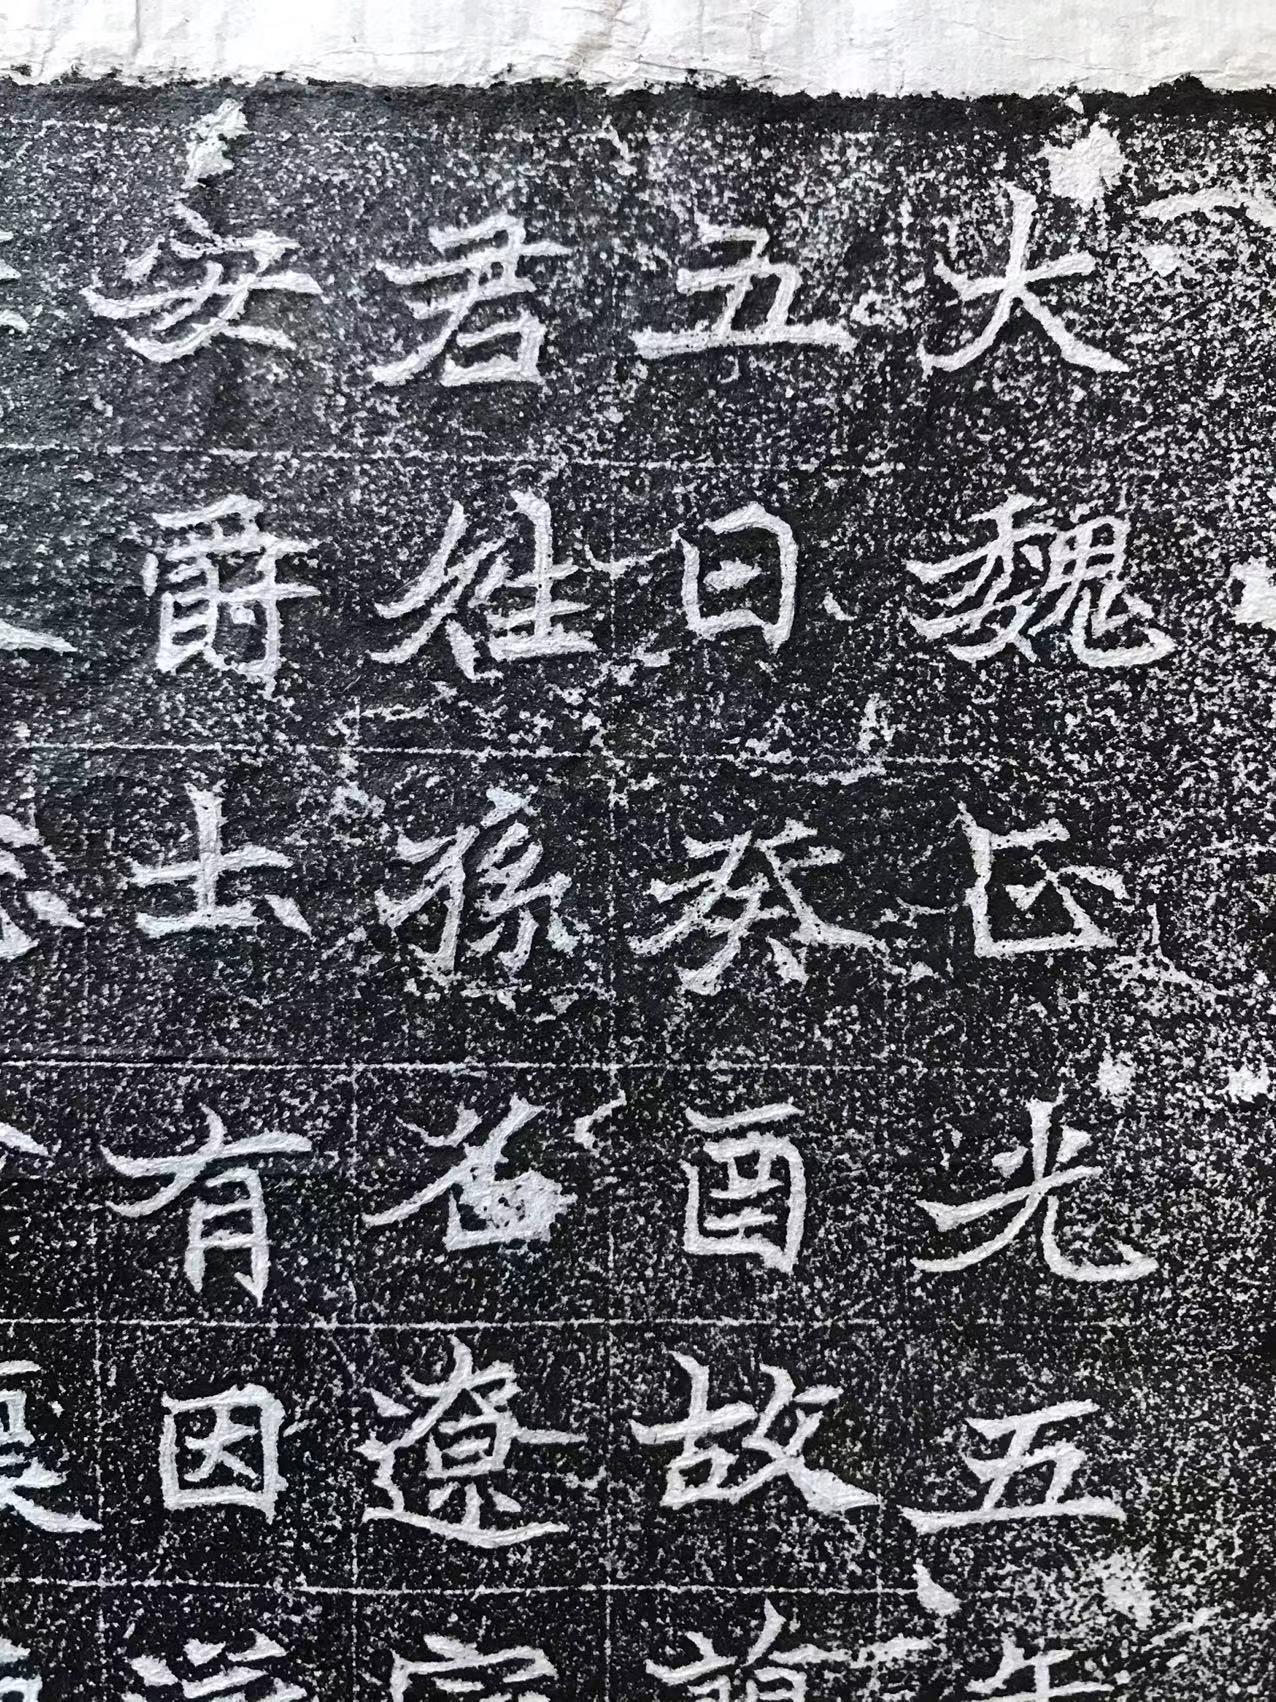 大魏正光五年
五日癸酉故
君姓孫名遼
安爵土有因